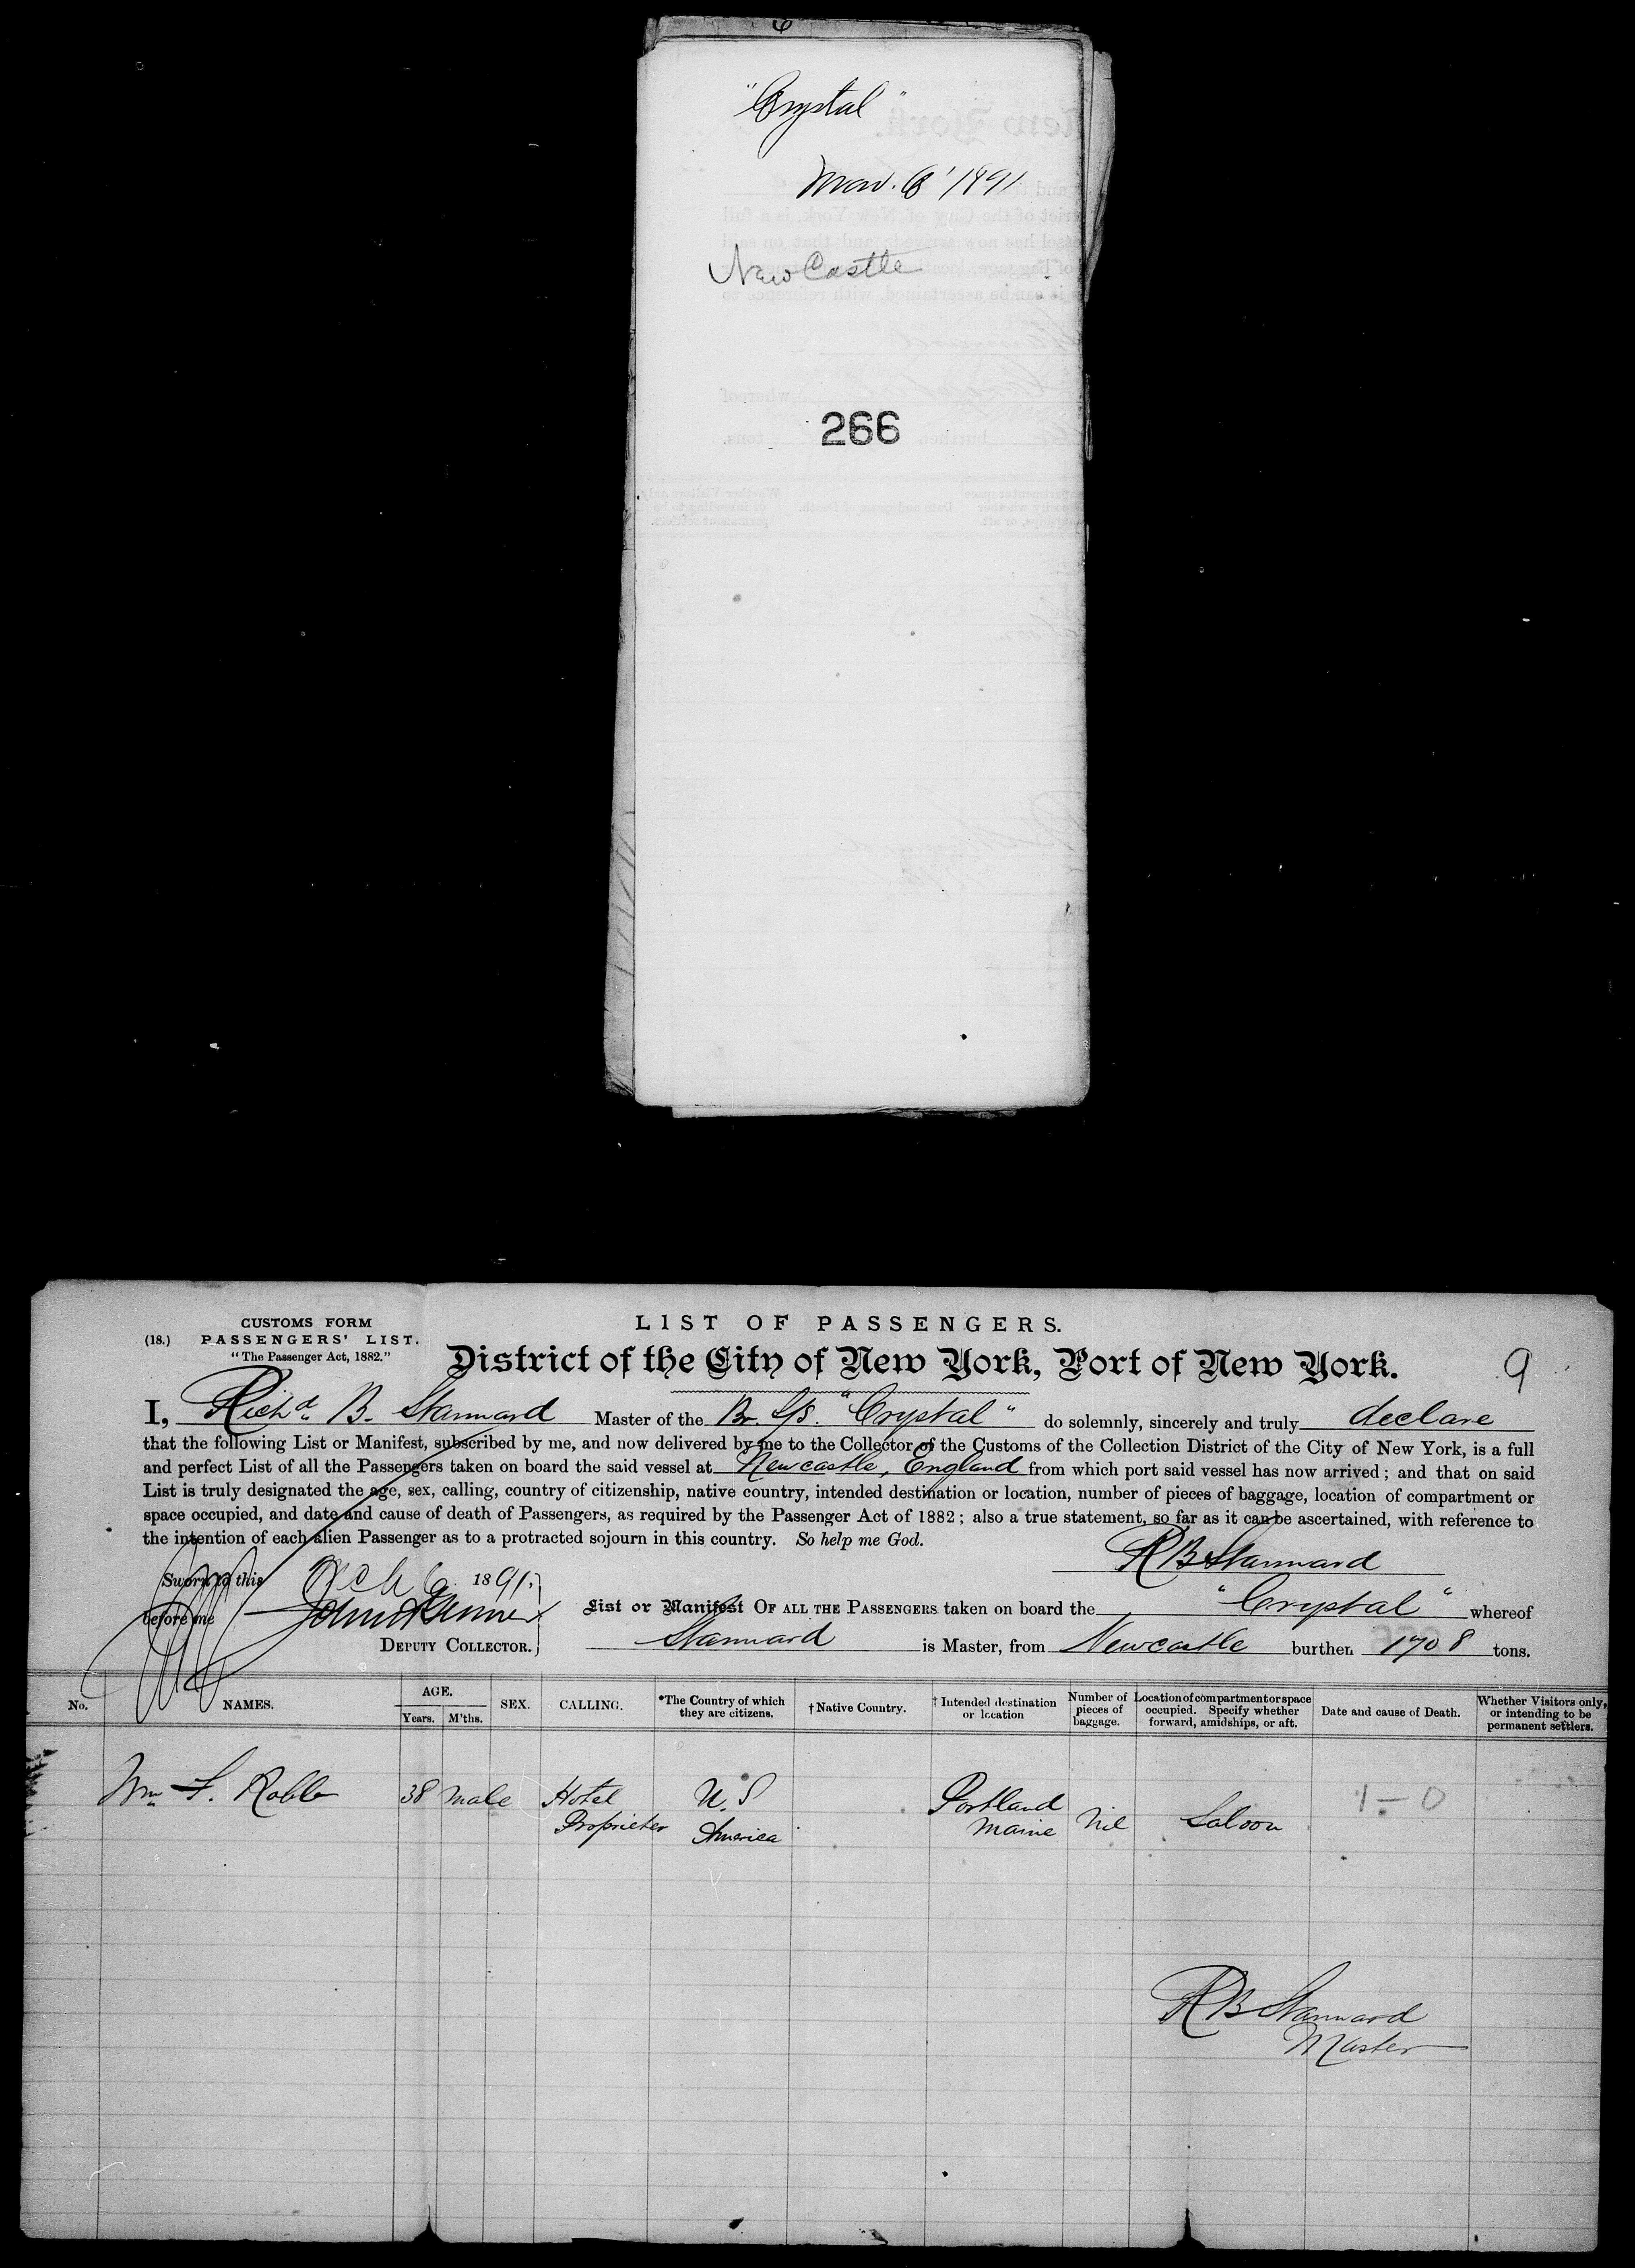 "Crystal"
Mar. 6' 1891
New Castle
266
CUSTOMS FORM
(18.) PASSENGERS' LIST.
"The Passenger Act, 1882."
LIST OF PASSENGERS.
District of the City of New York, Port of New York.
9
I, Richd. B. Stannard Master of the Br. S/S. "Crystal" do solemnly, sincerely and truly declare
that the following List or Manifest, subscribed by me, and now delivered by me to the Collector of the Customs of the Collection District of the City of New York, is a full
and perfect List of all the Passengers taken on board the said vessel at Newcastle, England from which port said vessel has now arrived; and that on said
List is truly designated the age, sex, calling, country of citizenship, native country, intended destination or location, number of pieces of baggage, location of compartment or
space occupied, and date and cause of death of Passengers, as required by the Passenger Act of 1882; also a true statement, so far as it can be ascertained, with reference to
the intention of each alien Passenger as to a protracted sojourn in this country. So help me God.
RB Stannard
Sworn to this 6 1891.
before me John
DEPUTY COLLECTOR.
List or Manifest OF ALL THE PASSENGERS taken on board the "Crystal" whereof
Stannard is Master, from Newcastle burthen 1708 tons.
No. NAMES. AGE. Years. M'ths. SEX. CALLING. *The Country of which they are citizens. †Native Country. †Intended destination or location Number of pieces of baggage. Location of compartment or space occupied. Specify whether forward, amidships, or aft. Date and cause of Death. Whether Visitors only, or intending to be permanent settlers.
Wm F. Robb 38 Male Hotel U.S Portland 1-0
Proprietor America Maine Nil Saloon
RB Stannard
Master